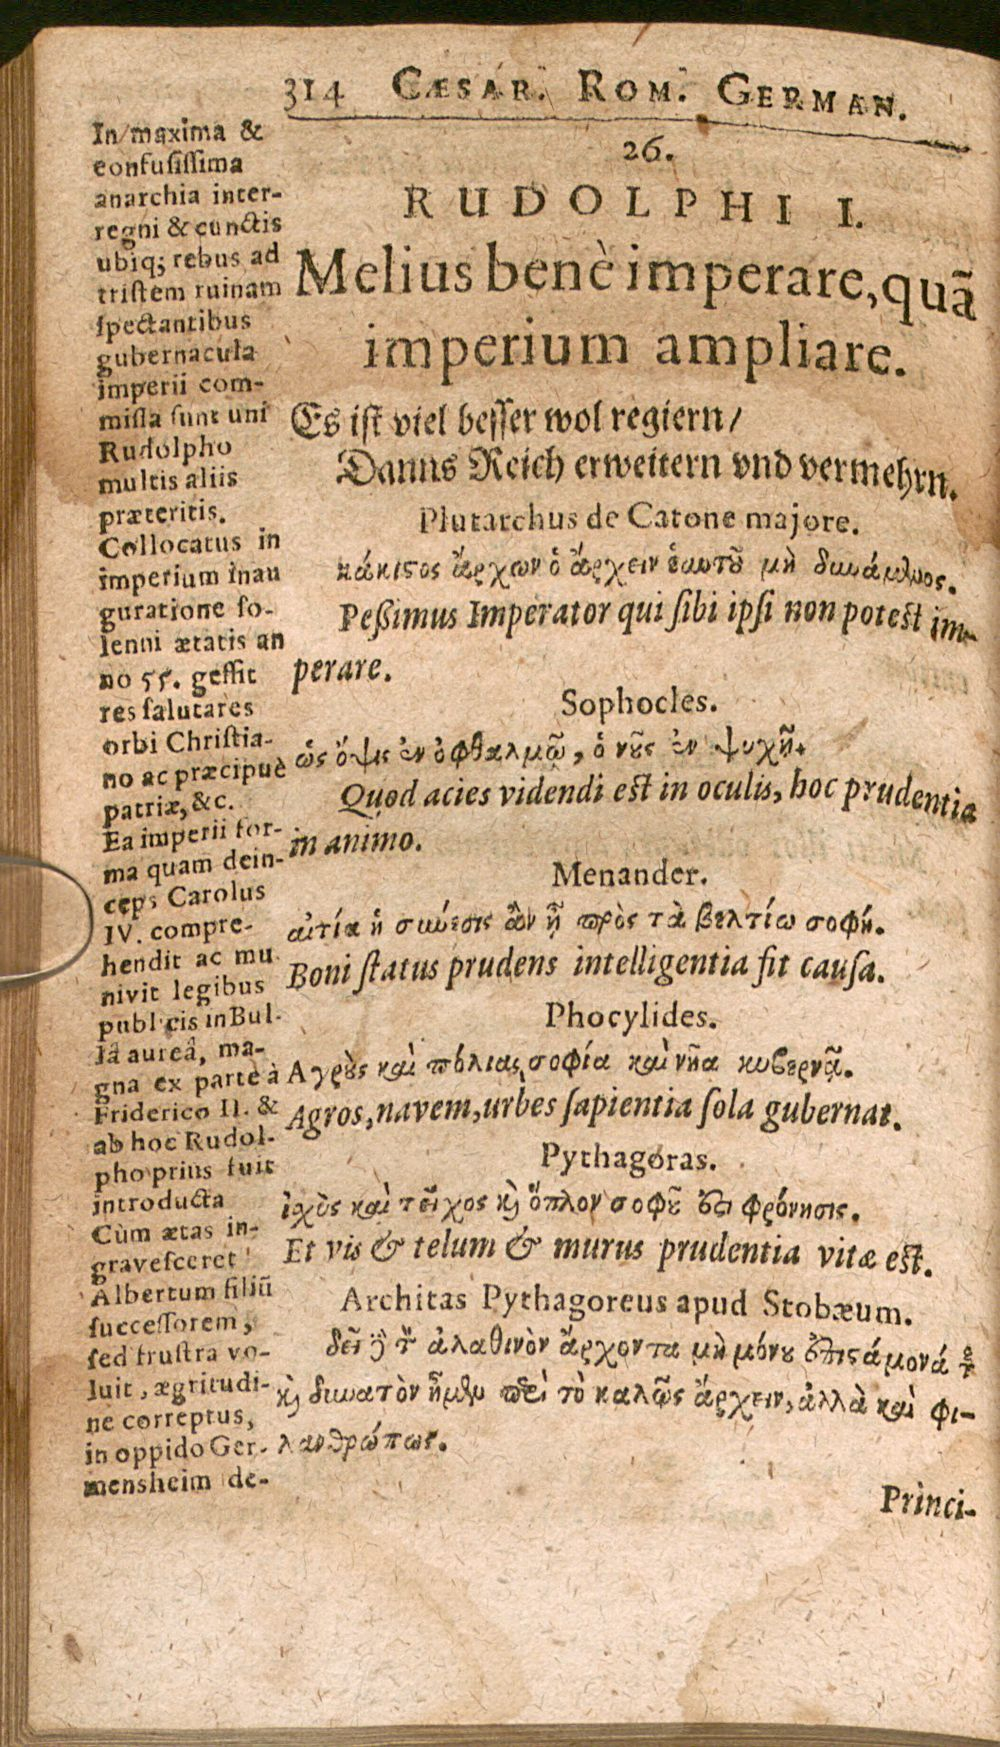 314 CÆSAR. ROM. GERMAN.
26.
RUDOLPHI I.
Melius benè imperare, quã
imperium ampliare.
Es ist viel besser wol regiern/
Danns Reich erweitern vnd vermehrn.
Plutarchus de Catone majore.
κάκιστος ἄρχων ὁ ἄρχειν ἑαυτοῦ μὴ δυνάμενος.
Peßimus Imperator qui ſibi ipſi non poteſt im-
perare.
Sophocles.
ὡς ὄψις ἐν ὀφθαλμῷ, ὁ νοῦς ἐν ψυχῇ.
Quod acies videndi eſt in oculis, hoc prudentia
in animo.
Menander.
αἰτία ἡ σύνεσις ἂν ᾖ πρὸς τὰ βελτίω σοφή.
Boni ſtatus prudens intelligentia ſit cauſa.
Phocylides.
Ἀγροὺς καὶ πόλιας σοφία καὶ νῆα κυβερνᾷ.
Agros, navem, urbes ſapientia ſola gubernat.
Pythagoras.
ἰχὺς καὶ τεῖχος κὶ ὅπλον σοφοῦ ἐστι φρόνησις.
Et vis & telum & murus prudentia vitæ eſt.
Architas Pythagoreus apud Stobæum.
δεῖ ἀλαθινὸν ἄρχοντα μὴ μόνου
κὶ δυνατὸν ἦμεν τὸ καλῶς ἄρχειν, ἀλλὰ καὶ φι-
λανθρώπως.
Princi-
In maxima &
confuſiſſima
anarchia inter-
regni & cunctis
ubiq; rebus ad
triſtem ruinam
ſpectantibus
gubernacula
imperii com-
miſſa ſunt uni
Rudolpho
multis aliis
præteritis.
Collocatus in
imperium inau
guratione ſo-
lenni ætatis an
no 55. geſſit
res ſalutares
orbi Chriſtia-
no ac præcipuè
patriæ, &c.
Ea imperii for-
ma quam dein-
ceps Carolus
IV. compre-
hendit ac mu
nivit legibus
publicis in Bul-
lâ aureâ, ma-
gna ex parte à
Friderico II. &
ab hoc Rudol-
pho prius fuit
introducta
Cùm ætas in-
graveſceret
Albertum filiũ
ſucceſſorem,
ſed fruſtra vo-
luit, ægritudi-
ne correptus,
in oppido Ger-
mensheim de-